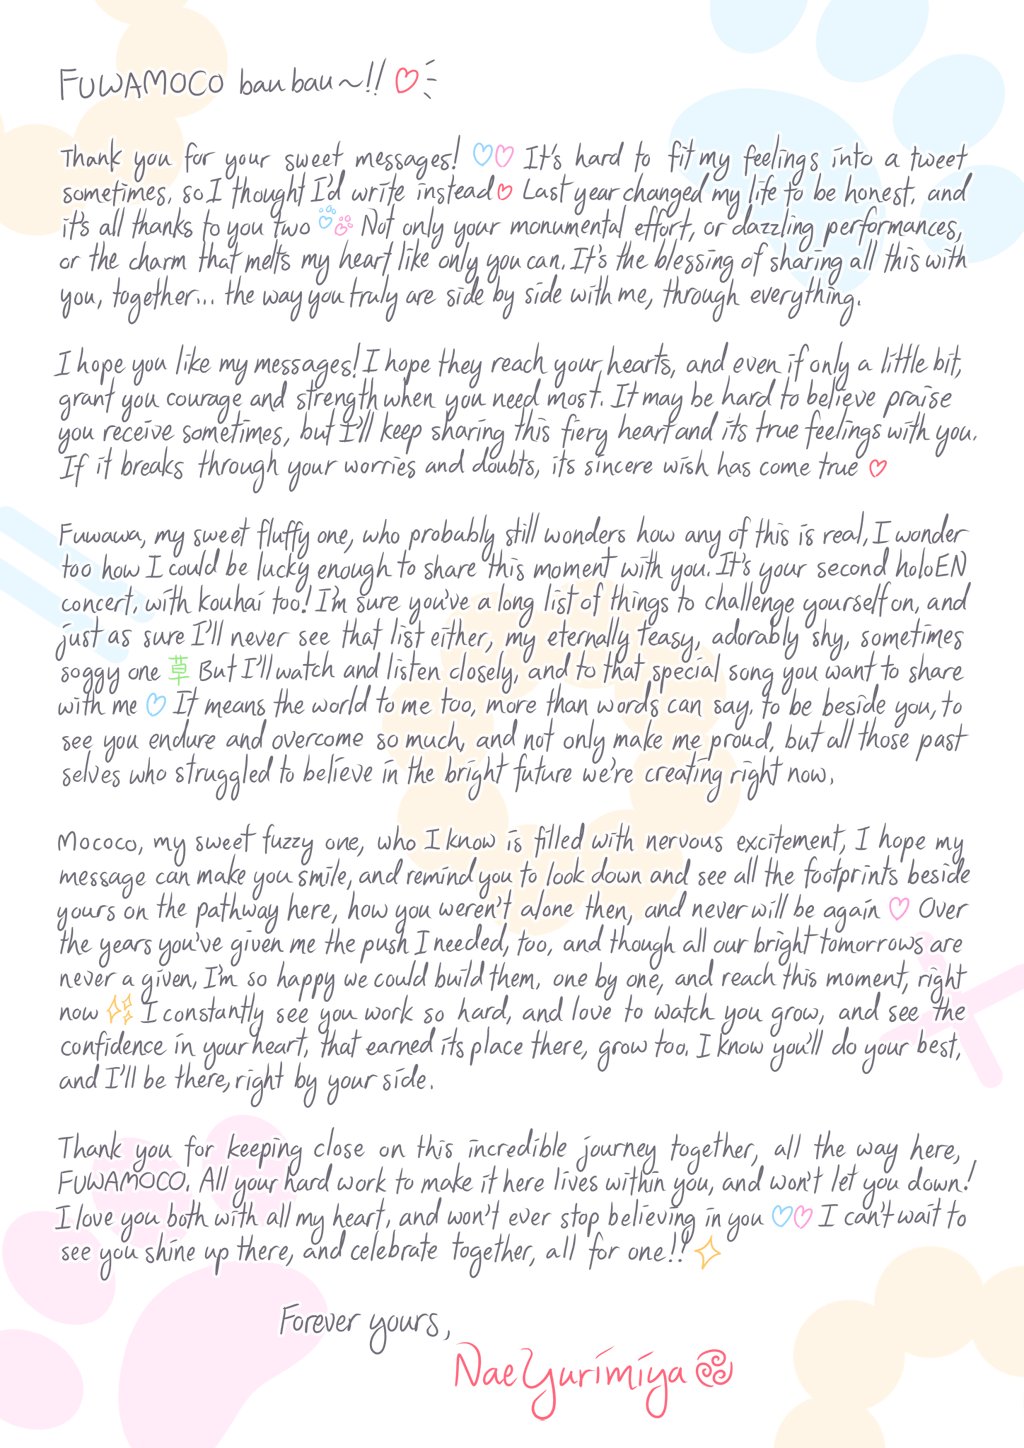 FUWAMOCO bau bau~!! ♡
Thank you for your sweet messages! ♡♡ It's hard to fit my feelings into a tweet
sometimes, so I thought I'd write instead♡ Last year changed my life to be honest, and
it's all thanks to you two 🐾🐾 Not only your monumental effort, or dazzling performances,
or the charm that melts my heart like only you can. It's the blessing of sharing all this with
you, together... the way you truly are side by side with me, through everything.
I hope you like my messages! I hope they reach your hearts, and even if only a little bit,
grant you courage and strength when you need most. It may be hard to believe praise
you receive sometimes, but I'll keep sharing this fiery heart and its true feelings with you.
If it breaks through your worries and doubts, its sincere wish has come true ♡
Fuwawa, my sweet fluffy one, who probably still wonders how any of this is real, I wonder
too how I could be lucky enough to share this moment with you. It's your second holoEN
concert, with kouhai too! I'm sure you've a long list of things to challenge yourself on, and
just as sure I'll never see that list either, my eternally teasy, adorably shy, sometimes
soggy one 草 But I'll watch and listen closely, and to that special song you want to share
with me ♡ It means the world to me too, more than words can say. to be beside you, to
see you endure and overcome so much, and not only make me proud, but all those past
selves who struggled to believe in the bright future we're creating right now.
Mococo, my sweet fuzzy one, who I know is filled with nervous excitement, I hope my
message can make you smile, and remind you to look down and see all the footprints beside
yours on the pathway here, how you weren't alone then, and never will be again ♡ Over
the years you've given me the push I needed, too, and though all our bright tomorrows are
never a given, I'm so happy we could build them, one by one, and reach this moment, right
now ✨ I constantly see you work so hard, and love to watch you grow, and see the
confidence in your heart, that earned its place there, grow too. I know you'll do your best,
and I'll be there, right by your side.
Thank you for keeping close on this incredible journey together, all the way here,
FUWAMOCO. All your hard work to make it here lives within you, and won't let you down!
I love you both with all my heart, and won't ever stop believing in you ♡♡ I can't wait to
see you shine up there, and celebrate together, all for one!! ✧
Forever yours,
Nae Yurimiya